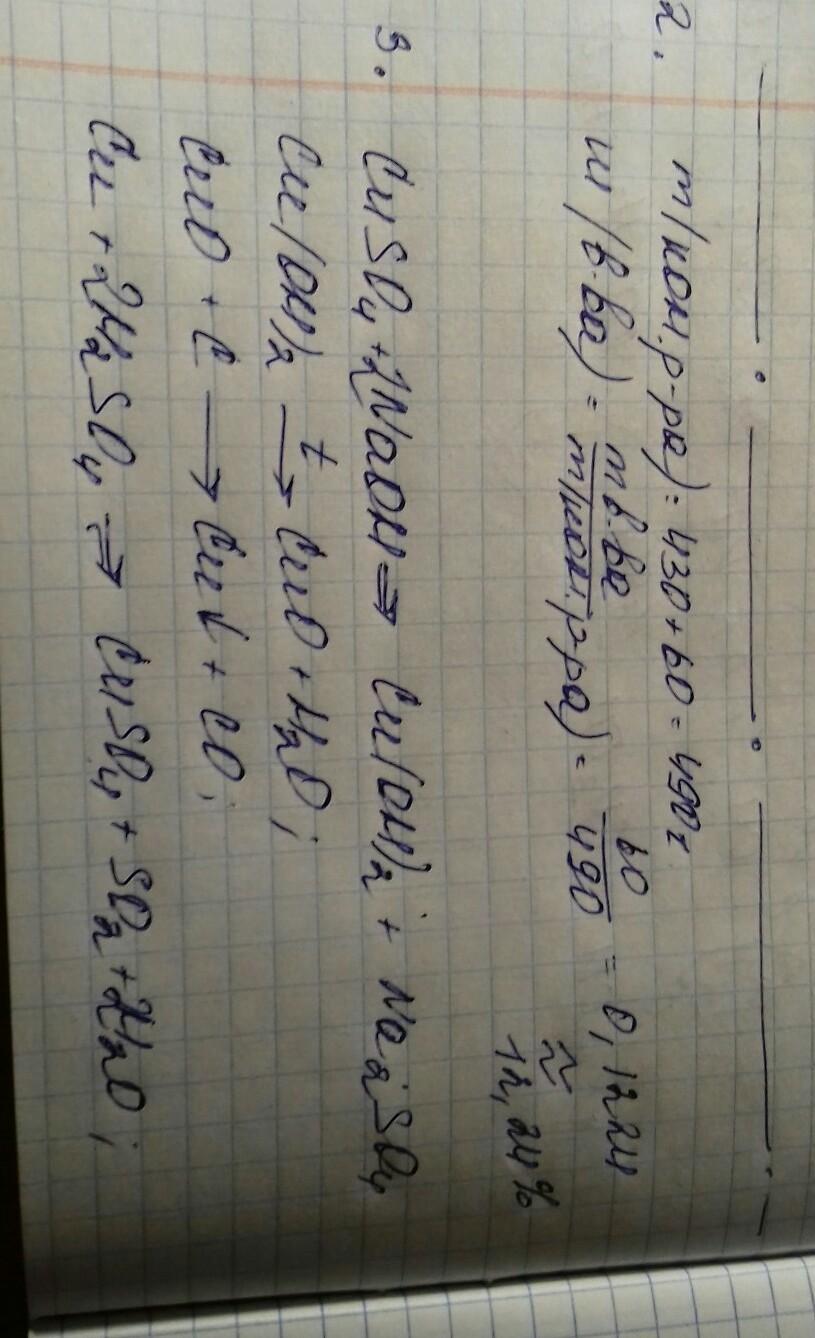 2. m(кон. р-ра) = 430 + 60 = 490г
w(в-ва) = m в-ва / m(кон. р-ра) = 60 / 490 = 0,1224
≈ 12,24%
3. CuSO₄ + 2NaOH ⇒ Cu(OH)₂ + Na₂SO₄
Cu(OH)₂ →t CuO + H₂O;
CuO + C → Cu↓ + CO;
Cu + 2H₂SO₄ ⇒ CuSO₄ + SO₂ + 2H₂O;